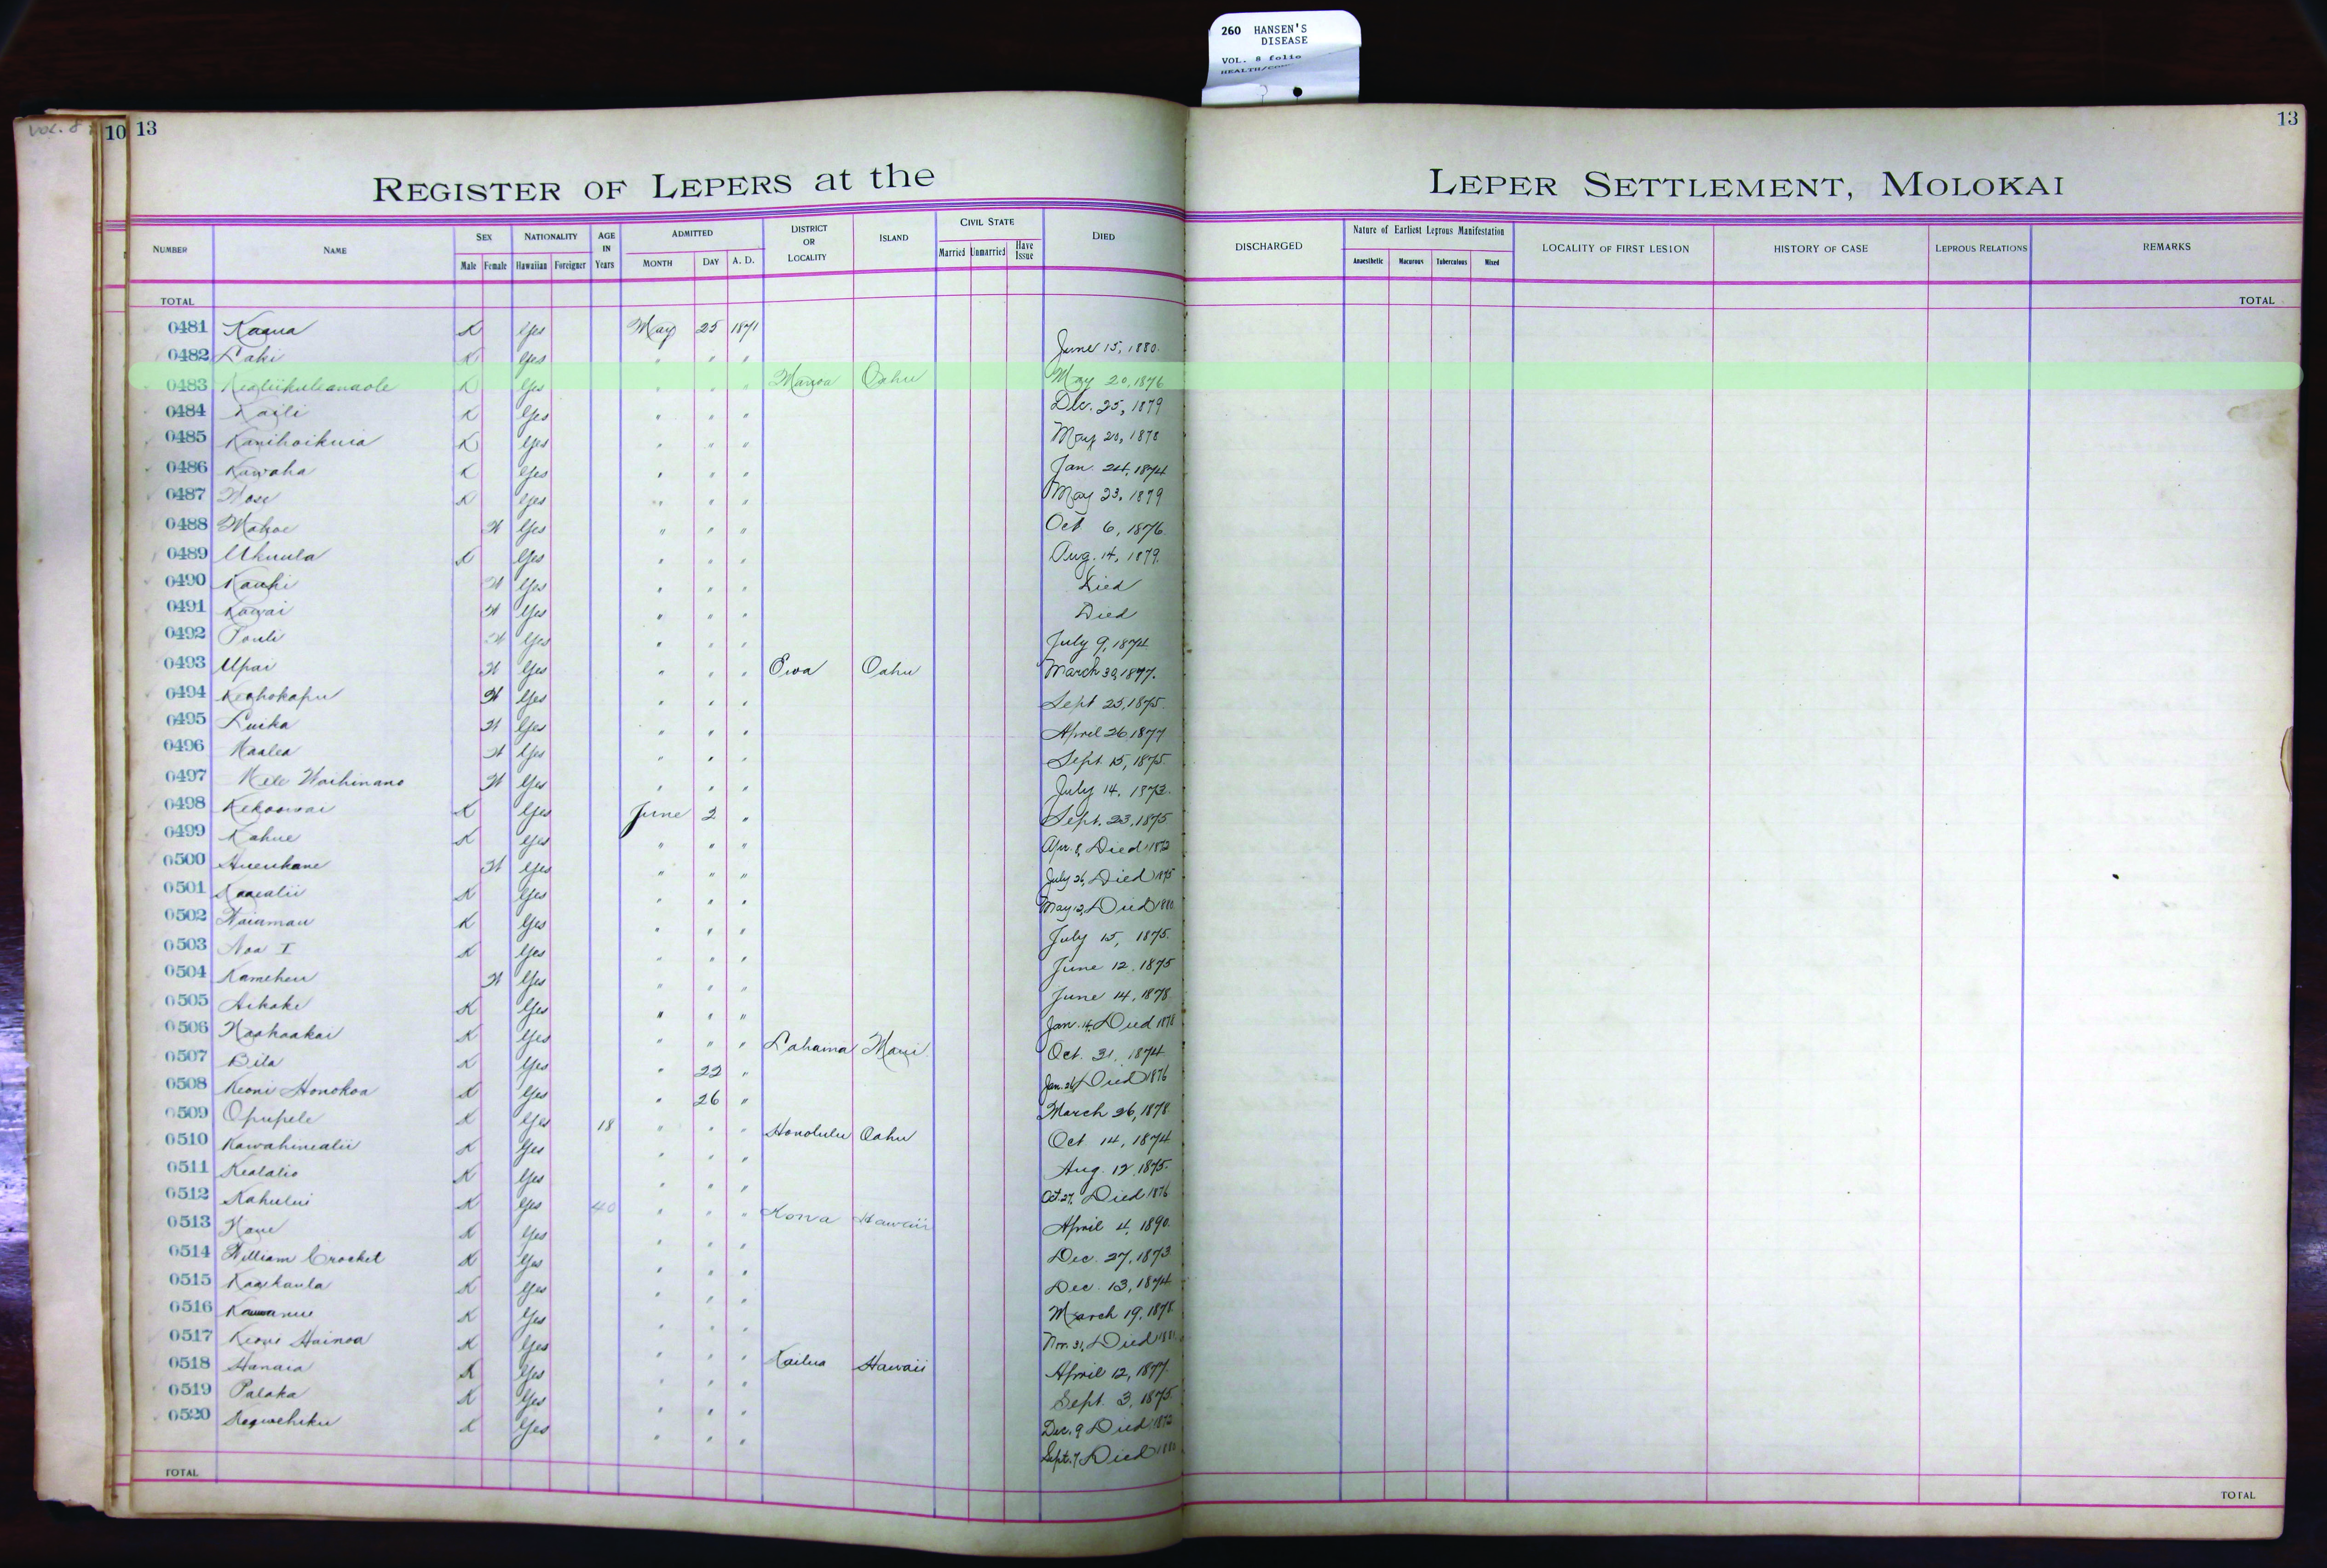 260 HANSEN'S
DISEASE
VOL. 8 folio
VOL. 8
10 13
13
REGISTER OF LEPERS at the LEPER SETTLEMENT, MOLOKAI
NUMBER NAME SEX Male Female NATIONALITY Hawaiian Foreigner AGE IN Years ADMITTED MONTH DAY A. D. DISTRICT OR LOCALITY ISLAND CIVIL STATE Married Unmarried Have Issue DIED
DISCHARGED Nature of Earliest Leprous Manifestation Anaesthetic Macurous Tuberculous Mixed LOCALITY OF FIRST LESION HISTORY OF CASE LEPROUS RELATIONS REMARKS
TOTAL TOTAL
0481 Kaaua K Yes May 25 1871
0482 Laki K Yes " " " June 15, 1880.
0483 Kealiikuleanaole K Yes " " " Manoa Oahu May 20, 1876
0484 Kaili K Yes " " " Dec. 25, 1879
0485 Kanihoikuia K Yes " " " May 20, 1878
0486 Kuwaha K Yes " " " Jan. 24, 1874
0487 K Yes " " " May 23, 1879
0488 Mahoe W Yes " " " Oct 6, 1876.
0489 Ukuula K Yes " " " Aug. 14, 1879.
0490 Kauhi W Yes " " " Died
0491 Kawai W Yes " " " Died
0492 Pouli W Yes " " " July 9, 1874
0493 Upai W Yes " " " Ewa Oahu March 30, 1877.
0494 Keahokapu W Yes " " " Sept 25, 1875.
0495 Luika W Yes " " " April 26 1877
0496 Maalea W Yes " " " Sept. 15, 1875.
0497 Mele Waihinano W Yes " " " July 14, 1873.
0498 Kekoowai K Yes June 2 " Sept. 23, 1875
0499 Kahue K Yes " " " Apr. 8, Died 1872
0500 W Yes " " " July 26, Died 1875
0501 Kaaealii K Yes " " " May 12, Died 1880
0502 Waiamau K Yes " " " July 15, 1875.
0503 Noa I K Yes " " " June 12, 1875
0504 Kameheu W Yes " " " June 14, 1878
0505 Aikake K Yes " " " Jan. 14, Died 1878
0506 Naahaakai K Yes " " " Lahaina Maui Oct. 31, 1874
0507 Bila K Yes " 22 " Jan. 26, Died 1876
0508 Keoni Honokoa K Yes " 26 " March 26, 1878
0509 Opupele K Yes 18 " " " Honolulu Oahu Oct 14, 1874
0510 Kawahinealii K Yes " " " Aug. 12, 1875.
0511 Kealalio K Yes " " " Oct. 27, Died 1876
0512 Kahului K Yes 40 " " " Kona Hawaii April 4, 1890.
0513 K Yes " " " Dec. 27, 1873
0514 William Crocket K Yes " " " Dec. 13, 1874
0515 Kaaikaula K Yes " " " March 19, 1878
0516 K Yes " " " Nov. 31, Died
0517 Keoni Hainoa K Yes " " " Kailua Hawaii April 12, 1877.
0518 Hanaia K Yes " " " Sept. 3, 1875.
0519 Palaka K Yes " " " Dec. 9 Died 1872
0520 K Yes " " " Sept. 7, Died 1880
TOTAL TOTAL